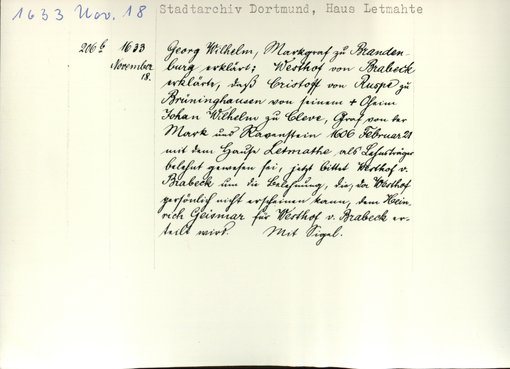 1633 Nov. 18
Stadtarchiv Dortmund, Haus Letmahte
206 b 1633 November 18.
Georg Wilhelm, Markgraf zu Branden-
burg erklärt: Westhof von Brabeck
erklärte, daß Cristoff von Ruspe zu
Brüninghausen von seinem + Oheim
Johan Wilhelm zu Cleve, Graf von der
Mark und Ravenstein 1606 Februar 21
mit dem Hause Letmathe als Lehnsträger
belehnt gewesen sei, jetzt bittet Westhof v.
Brabeck um die Belehnung, die, da Westhof
persönlich nicht erscheinen kann, dem Hein-
rich Geismar für Westhof v. Brabeck er-
teilt wird. Mit Sigel.